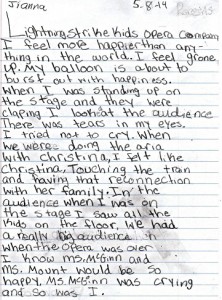 Jianna 5.8.14
Lightning strike Kids Opera Company
I feel more happier than any-
thing in the world. I feel grone
up. My balloon is about to
burst out with happness.
When I was standing up on
the stage and they were
claping I look at the audience
There was tears in my eyes.
I tried not to cry. When
we were doing the aria
with Christina, I felt like
Christina, Touching the train
and having that reconnection
with her family. In the
audience when I was on
the stage I saw all the
kids on the floor, We had
a really big audience
when the opera was over
I know MS. McGinn and
MS. Mount would be so
happy, Ms. McGinn was crying
and so was I.